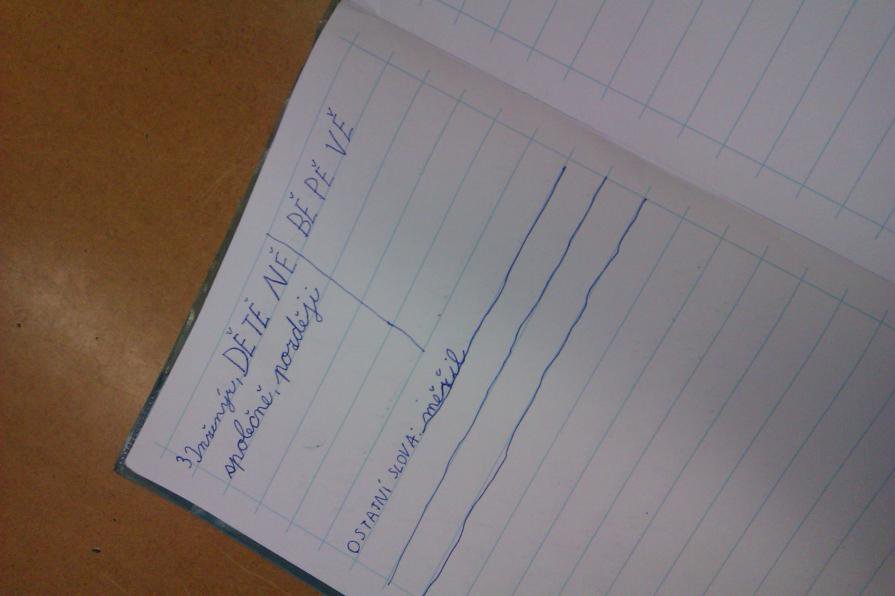 3 Inženýr, DĚ TĚ NĚ BĚ PĚ VĚ
společně, později
OSTATNÍ SLOVA: měřil